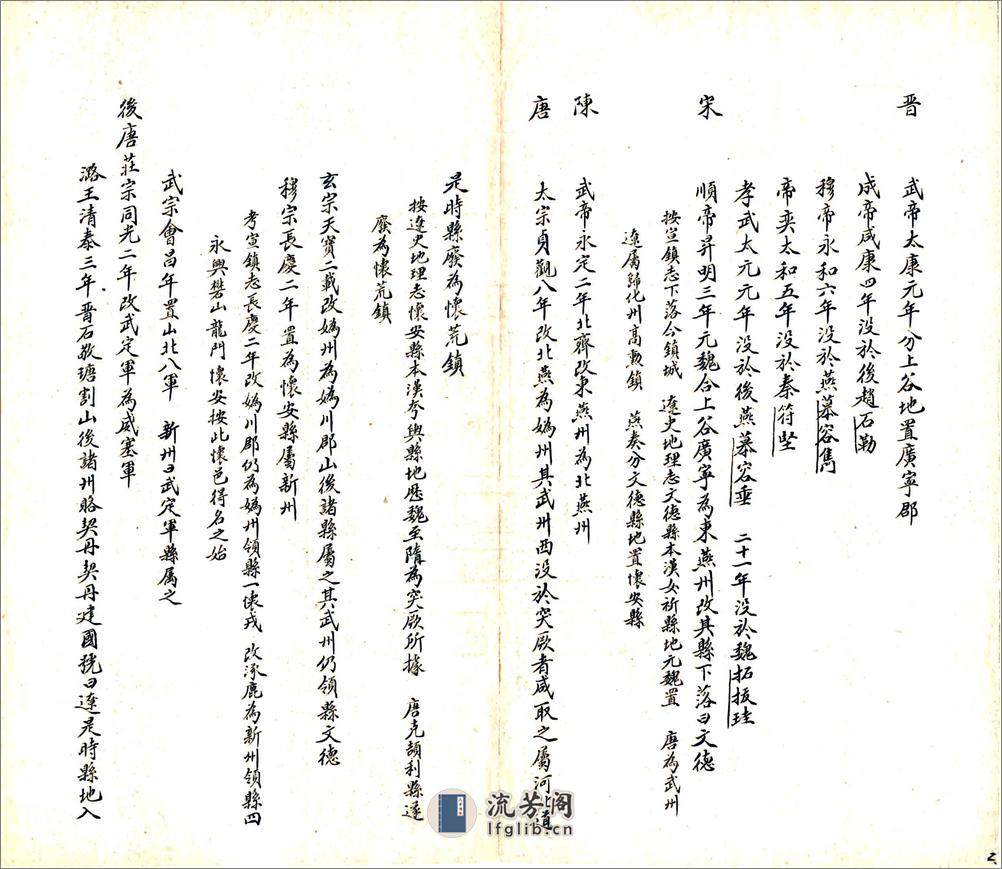 晋
武帝太康元年分上谷地置廣寧郡
成帝咸康四年没於後趙石勒
穆帝永和六年没於燕慕容雋
帝奕太和五年没於秦符坚
孝武太元元年没於後燕慕容垂 二十一年没於魏拓拔珪
宋
順帝昇明三年元魏合上谷廣寧為東燕州改其縣下落曰文德
按宣鎮志下落今鎮城 遼史地理志文德縣本漢女祈縣地元魏置 唐為武州
遼属歸化州高勳鎮 燕奏分文德縣地置懷安縣
陳
武帝永定二年北齊改東燕州為北燕州
唐
太宗貞觀八年改北燕為媯州其武州西没於突厥者咸取之屬河北道
是時縣廢為懷荒鎮
按遼史地理志懷安縣本漢夸輿縣地歷魏至隋為突厥所據 唐克頡利縣遂
廢為懷荒鎮
玄宗天寶二載改媯州為媯川郡山後諸縣屬之其武州仍領縣文德
穆宗長慶二年置為懷安縣屬新州
考宣鎮志長慶二年改媯川郡仍為媯州領縣一懷戎 改涿鹿為新州領縣四
永興礬山龍門懷安按此懷邑得名之始
武宗會昌年置山北八軍 新州曰武定軍縣属之
後唐莊宗同光二年改武定軍為威塞軍
潞王清泰三年晋石敬瑭割山後諸州賂契丹契丹建國號曰遼是時縣地入
流芳阁
lfglib.cn
2